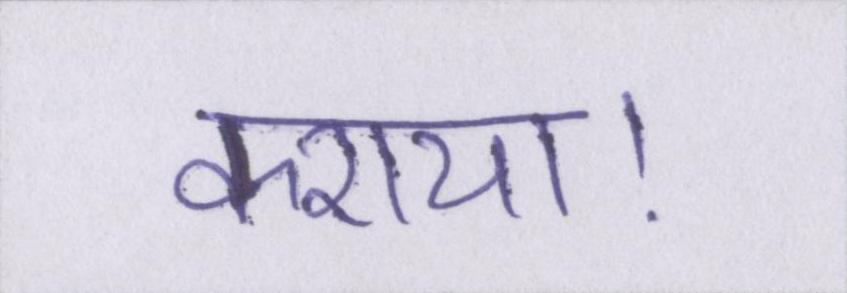 कराया!